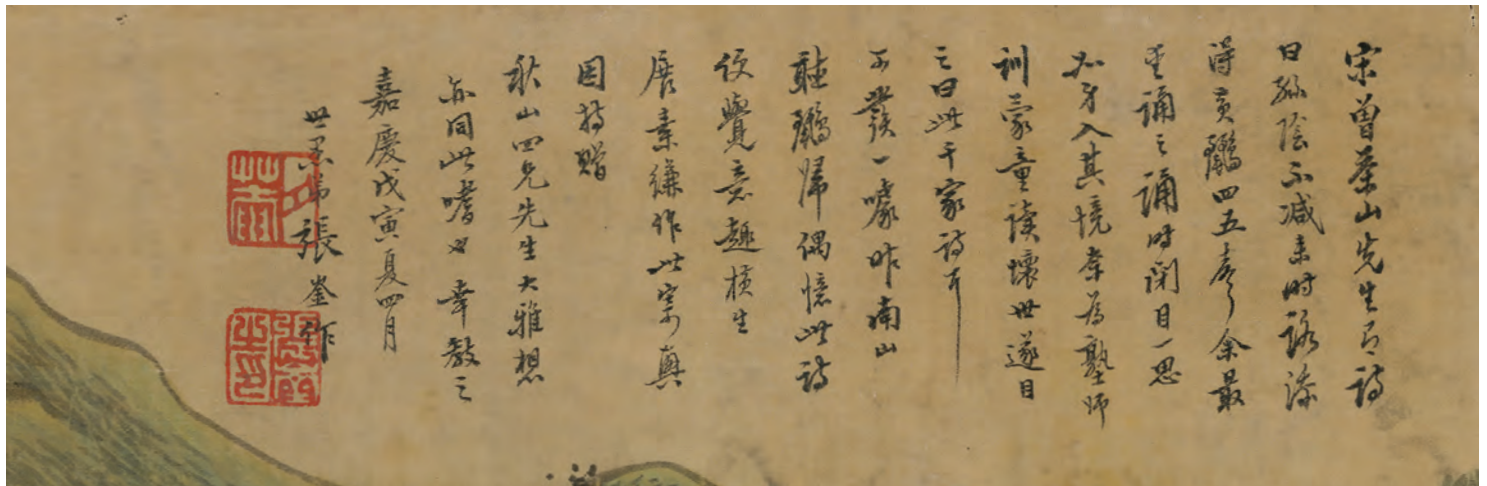 宋曾茶山先生有詩
曰綠陰不減來時路添
得黃鸝四五聲余最
喜誦之誦時閉目一思
如身入其境奈為塾師
訓蒙童讀壞世遂目
之曰此千家詩耳
不發一噱昨南山
聽鸝歸偶憶此詩
便覺意趣橫生
展素縑作此寄興
因持贈
秋山四兄先生大雅想
亦同此嗜也幸教之
嘉慶戊寅夏四月
世愚弟張崟作